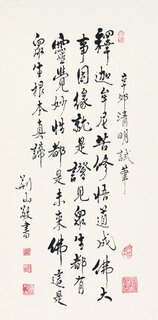 辛卯清明試筆
釋迦牟尼苦修悟道成佛大
事因緣就是證見眾生都有
靈覺妙性都是未來佛這是
眾生根本真諦
敬書